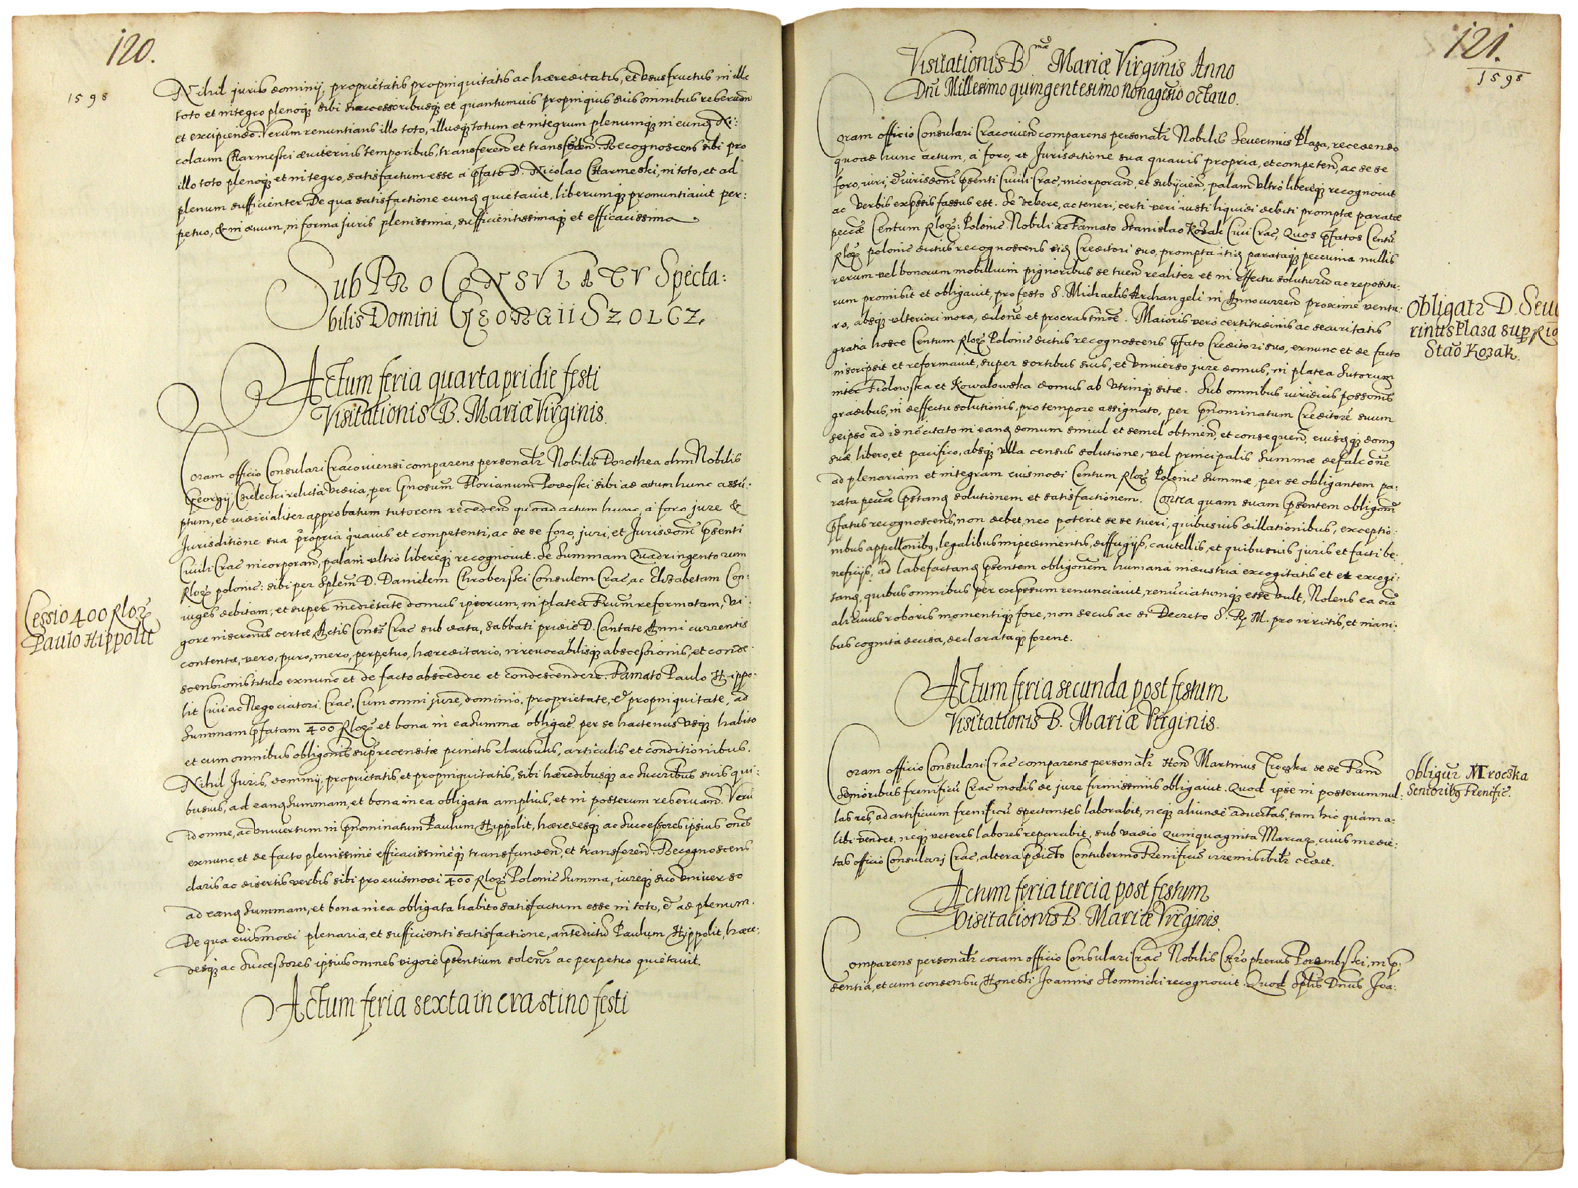 120.
1598
Nihil juris dominij, proprietatis propinquitatis ac haereditatis, et ususfructus in illo
toto et integro plenoq; sibi successoribusq; et quantumuis propinquis suis omnibus reseruan
et excipiendo. Verum renuntians illo toto, illudq; totum et integrum plenumq; in eund Ni:
colaum Charmeski aeuiternis temporibus, transferen et transfuden. Recognoscens sibi pro
illo toto plenoq; et integro, satisfactum esse a pfato D. Nicolao Charmeski, in toto, et ad
plenum sufficienter. De qua satisfactione eund quietauit, liberumq; pronuntiauit per:
petuo, & in aeuum, in forma juris plenissima, sufficientissimaq; et efficacissima.
Sub PROCONSVLATV Specta:
bilis Domini GEORGII SZOLCZ.
Actum feria quarta pridie festi
Visitationis B. Mariae Virginis.
Coram officio Consulari Cracouiensi comparens personalr Nobilis Dorothea olim Nobilis
Georgij relicta vidua, per Gnosum Florianum sibi ad actum hunc assu:
ptum, et iudicialiter approbatum tutorem receden quoad actum hunc, a foro jure &
Jurisditione sua propria quauis et competenti, ac se se foro, juri, et Jurisdoni psenti
Ciuili Crac incorporan, palam ultro libereq; recognouit. Se Summam Quadringentorum
flor polonic: sibi per Splem D. Danielem Chroberski Consulem Crac, ac Elisabetam Con:
iuges debitam, et super medietate domus ipsorum, in platea reformatam, vi:
gore inscronis certae Actis Cons Crac sub data, sabbati pridie D. Cantate Anni currentis
contentae, vero, puro, mero, perpetuo, haereditario, irreuocabilisq; abscessionis, et conde:
scensionis titulo exnunc et de facto abscedere et condescendere. Famato Paulo Hippo:
lit Ciui ac Negociatori Crac, Cum omni jure, dominio, proprietate, & propinquitate, ad
Summam pfatam 400 flor et bona in ea summa obligat per se hactenus usq; habito
et cum omnibus obligonis suprecensitae punctis clausulis, articulis et conditionibus.
Nihil Juris, dominij, proprietatis, et propinquitatis, sibi haeredibusq; ac succribus suis qui:
busuis, ad eand Summam, et bona in ea obligata amplius, et in posterum reseruan. Veru
id omne, ac uniuersum in pnominatum Paulum Hippolit, haeredesq; ac Successores ipsius omes
exnunc et de facto plenissime efficacissimeq; transfunden, et transferen. Recognoscens
claris ac disertis verbis sibi pro eiusmodi 400 flor Polonic Summa, iureq; suo uniuerso
ad eand Summam, et bona in ea obligata habito satisfactum esse in toto, & ad plenum.
De qua eiusmodi plenaria, et sufficienti satisfactione, antedictu Paulum Hippolit, haere:
desq; ac Successores ipsius omnes vigore psentium solenr ac perpetuo quietauit.
Cessio 400 flor
Paulo Hippolit
Actum feria sexta in crastino festi
121.
1598
Visitationis B mae Mariae Virginis Anno
Dni Millesimo quingentesimo nonagesimo octauo.
Coram officio Consulari Cracouien comparens personalr Nobilis Seuerinus Plaza, recedendo
quoad hunc actum, a foro, et Jurisditione sua quauis propria, et competen, ac se se
foro, iuri, & iurisdoni psenti Ciuili Crac, incorporan, et subijcien, palam ultro libereq; recognouit
ac verbis expssis fassus est. Se debere, ac teneri, certi veri iusti liquidi debiti promptae paratae
pecuae Centum flor: Polonic. Nobili ac Famato Stanislao Kozak Ciui Crac, Quos pfatos Centu
flor polonic dictus recognoscens eid Creditori suo, prompta itid parataq; pecunia nullis
rerum vel bonorum mobilium pignoribus se tuen realiter et in effectu soluturu ac repositu:
rum promisit et obligauit, pro festo S. Michaelis Archangeli in Anno curren proxime ventu:
ro, absq; ulteriori mora, dilone et procrastinoe. Maioris vero certitudinis ac securitatis
gratia hosce Centum flor Polonic dictus recognoscens pfato Creditori suo, exnunc et de facto
inscripsit et reformauit, super sortibus suis, et uniuerso jure domus, in platea Sutorum
inter Fidlowska et Kowalowska domus ab utrinq; sitae. Sub omnibus iuridicis possonis
gradibus, in deffectu solutionis, pro tempore assignato, per pnominatum Creditore suum
seipso ad id no citato in eand domum simul et semel obtinen, et consequen, eiusdq; domq
suae libero, et pacifico, absq; ulla census solutione, vel principalis Summae defalcone
ad plenariam et integram eiusmodi Centum flor Polonic Summae, per se obligantem pa:
rata pecua pstand solutionem et satisfactionem. Contra quam suam psentem obligone
pfatus recognoscens, non debet, nec poterit se se tueri, quibusuis dillationibus, exceptio:
nibus appellonibq, legalibus impedimentis, diffugijs, cautellis, et quibusuis juris et facti be:
neficijs, ad labefactand psentem obligonem humana industria excogitatis et excogi:
tand, quibus omnibus per expssum renunciauit, renuciatumq; esse vult, Nolens ea oia
alicuius roboris momentiq; fore, non secus ac si Decreto S. R. M. pro irritis, et inani:
bus cognita decisa, declarataq; forent.
Obligatr D. Seue
rinus Plasa sup flo
Stao Kozak.
Actum feria secunda post festum
Visitationis B. Mariae Virginis.
Coram officio Consulari Crac comparens personalr Hon Martinus Mroczka se se Fam
Senioribus frenificu Crac modis de jure firmissimis obligauit. Quod ipse in posterum nul:
las res, ad artificium frenificu spectantes laborabit, neq; aliunde aduectas, tam hic quam a:
libi vendet, neq; veteres labores reparabit, sub vadio Quinquaginta Marcar, cuius medie:
tas officio Consulari Crac, altera pdicto Contubernio Frenificu irremisibilr cedet.
Obligur Mroczka
Senioribq Frenific.
Actum feria tercia post festum
Visitationis B. Mariae Virginis.
Comparens personalr coram officio Consulari Crac Nobilis Chrophorus Porembski, in p:
sentia, et cum consensu Honesti Joannis Slomnicki recognouit. Quod Splis Dnus Joa: